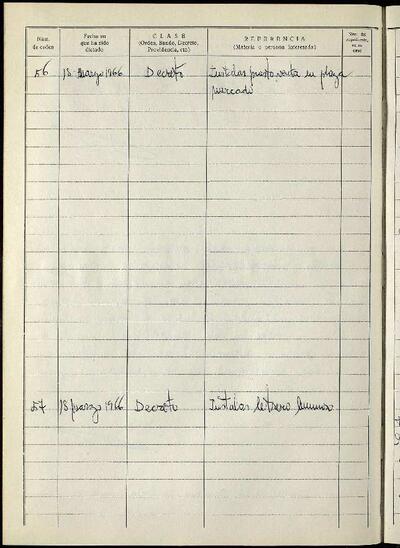 Núm. de orden
Fecha en que ha sido dictado
CLASE
(Orden, Bando, Decreto, Providencia, etc.)
REFERENCIA
(Materia o persona interesada)
Núm. del expediente, en su caso
56 18 marzo 1966 Decreto Instalar puesto venta en plaza
mercado
57 18 marzo 1966 Decreto Instalar letrero luminoso